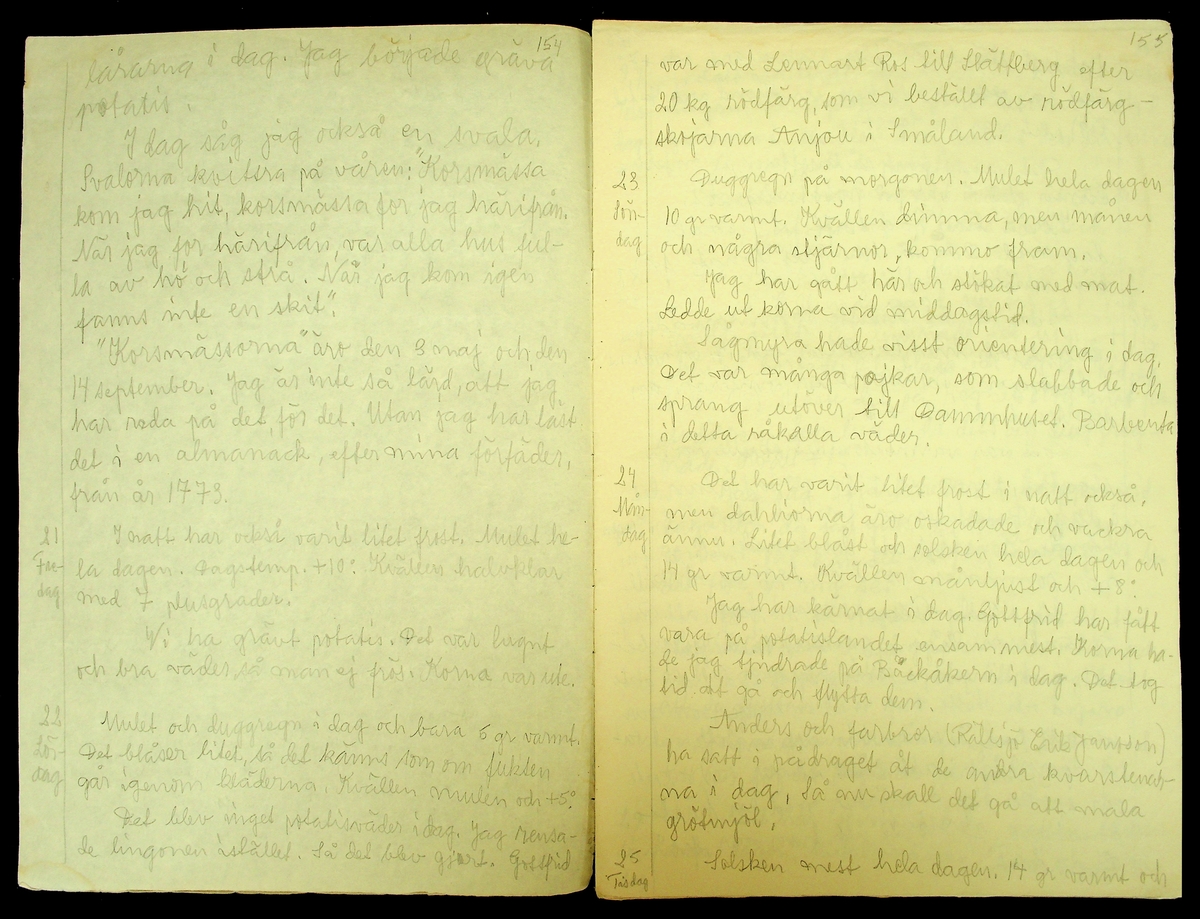 154
lärarna i dag. Jag började gräva
potatis.
I dag såg jag också en svala.
Svalorna kvittra på våren: "Korsmässa
kom jag hit, korsmässa for jag härifrån.
När jag for härifrån, var alla hus ful-
la av hö och strå. När jag kom igen
fanns inte en skit".
"Korsmässorna" äro den 3 maj och den
14 september. Jag är inte så lärd, att jag
har reda på det, för det. Utan jag har läst
det i en almanack, efter mina förfäder,
från år 1773.
21
Fre-
dag
I natt har också varit litet frost. Mulet he-
la dagen. Dagstemp. +10°. Kvällen halvklar
med 7 plusgrader.
Vi ha grävt potatis. Det var lugnt
och bra väder, så man ej frös. Korna var ute.
22
Lör-
dag
Mulet och duggregn i dag och bara 6 gr varmt.
Det blåser litet, så det känns som om fukten
går igenom kläderna. Kvällen mulen och +5°.
Det blev inget potatisväder i dag. Jag rensa-
de lingonen istället. Så det blev gjort. Gottfrid
155
var med Lennart Ros till Slättberg efter
20 kg rödfärg, som vi beställt av rödfärg-
skojarna Anjou i Småland.
23
Sön-
dag
Duggregn på morgonen. Mulet hela dagen
10 gr varmt. Kvällen dimma, men månen
och några stjärnor, kommo fram.
Jag har gått här och stökat med mat.
Ledde ut korna vid middagstid.
Sågmyra hade visst orientering i dag.
Det var många pojkar, som slabbade och
sprang utöver till Dammhuset. Barbenta
i detta råkalla väder.
24
Mån-
dag
Det har varit litet frost i natt också,
men dahliorna äro oskadade och vackra
ännu. Litet blåst och solsken hela dagen och
14 gr varmt. Kvällen månljust och +8°.
Jag har kärnat i dag. Gottfrid har fått
vara på potatislandet ensam mest. Korna ha-
de jag tjudrade på Bäckåkern i dag. Det tog
tid att gå och flytta dem.
Anders och farbror (Erik Jansson)
ha satt i pådraget åt de andra kvarstenar-
na i dag, Så nu skall det gå att mala
grötmjöl.
25
Tisdag
Solsken mest hela dagen. 14 gr varmt och